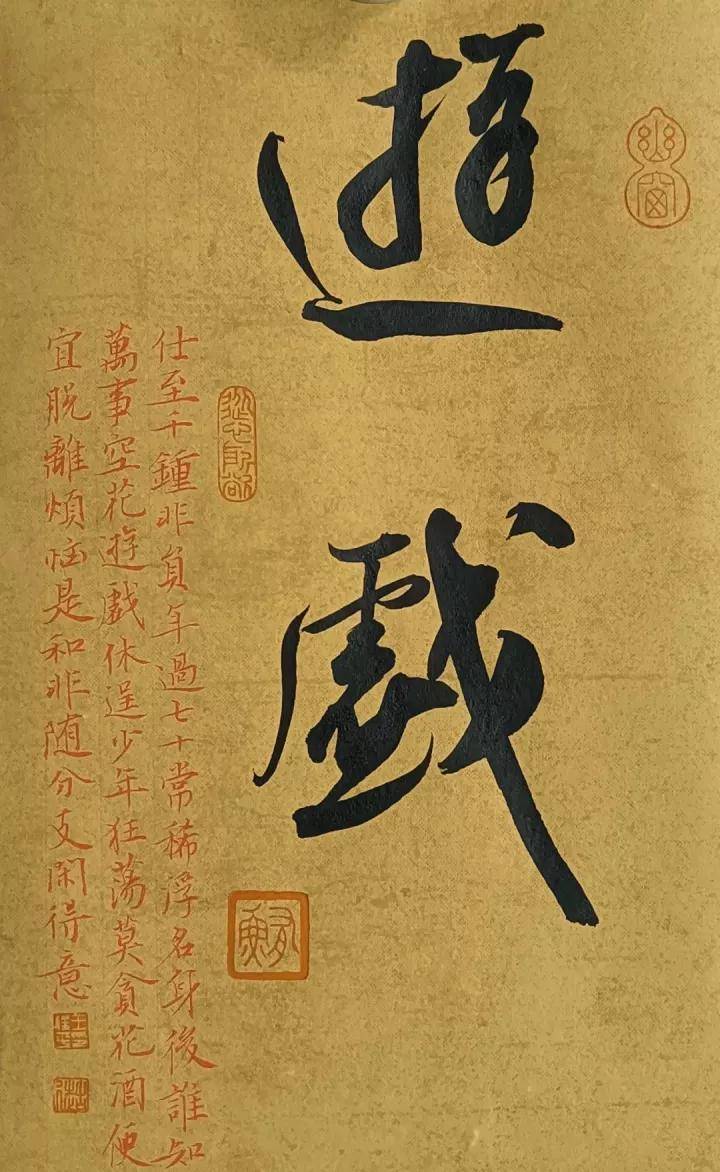 遊戲
幽窗
從吾所好
仕至千鍾非負年過七十常稀浮名身後誰知
萬事空花遊戲休逞少年狂蕩莫貪花酒便
宜脫離煩惱是和非随分支閑得意